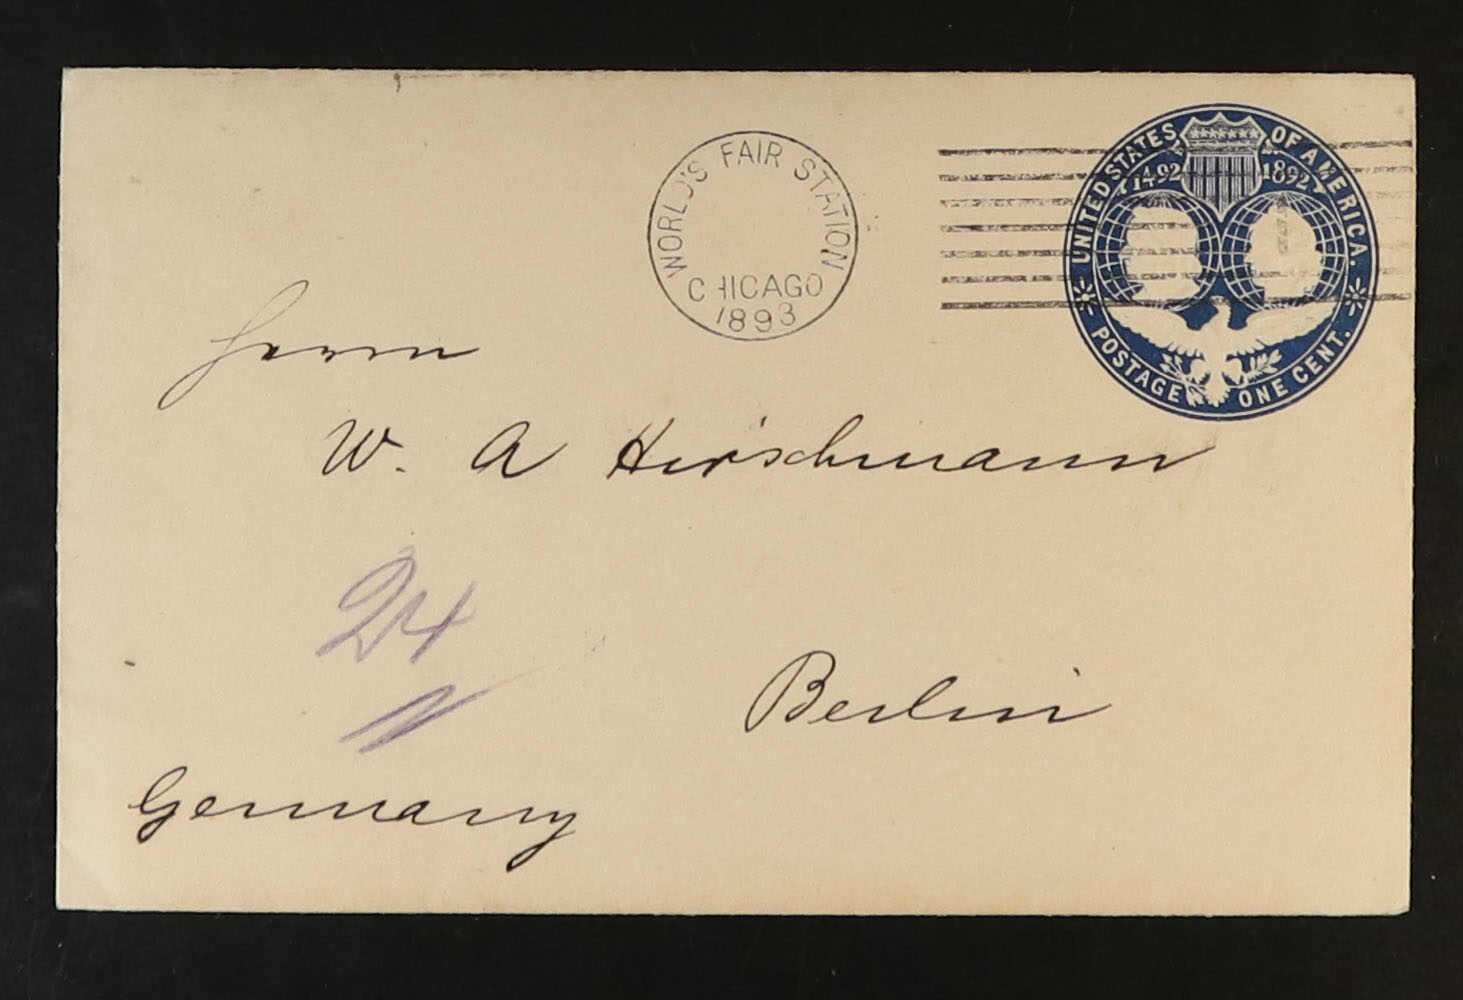 WORLD'S FAIR STATION
CHICAGO
1893
UNITED STATES OF AMERICA.
1492 1892
POSTAGE ONE CENT.
Herrn
W. A Hirschmann
24
Berlin
Germany